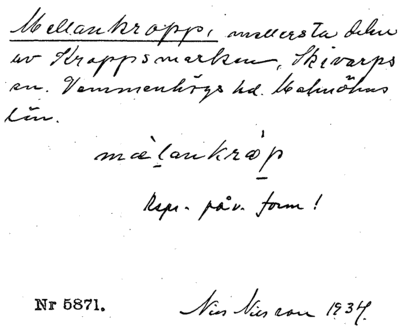 Mellankropp, mellersta delen
av Kroppsmarken, Skivarps
sn. Vemmenhögs hd. Malmöhus
län.
mælankråp
Rspr. påv. form!
Nr 5871. Nils Nilsson 1934.